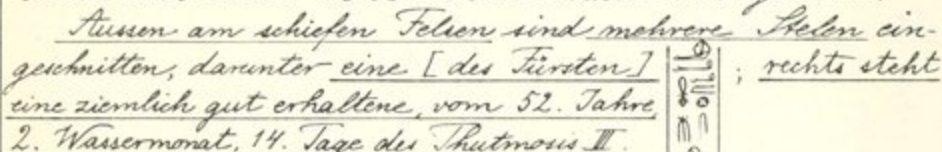 Aussen am schiefen Felsen sind mehrere Stelen ein-
geschnitten, darunter eine [des Fürsten] ; rechts steht
eine ziemlich gut erhaltene, vom 52. Jahre,
2. Wassermonat, 14. Tage des Thutmosis III.